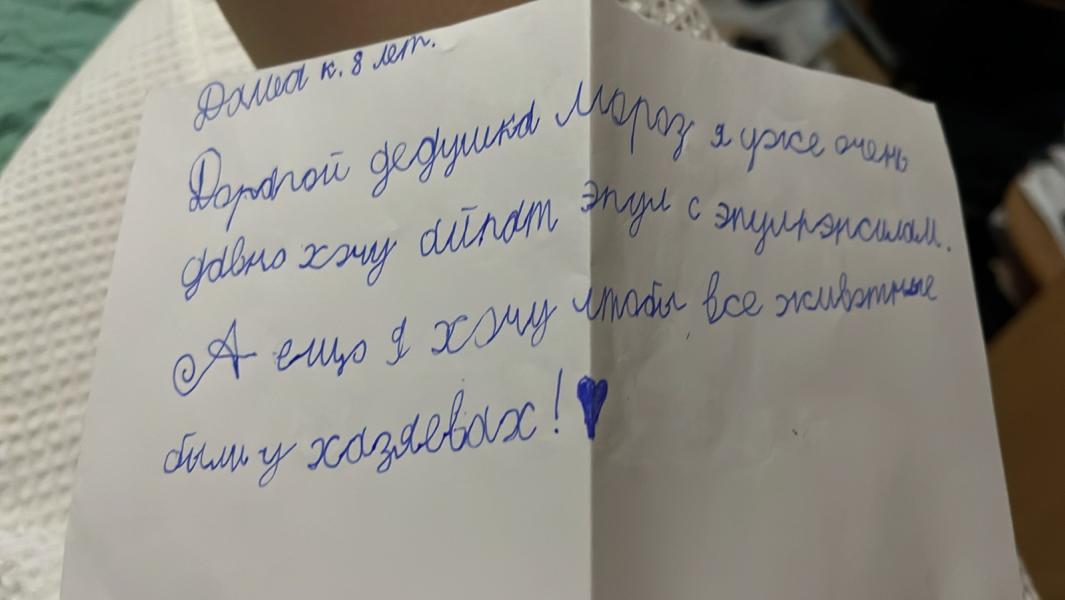 Даша к. 8 лет.
Дорогой дедушка Мороз я уже очень
давно хочу айпат эпул с эпулпэнсилам.
А ещо я хочу чтобы все живэтные
были у хазяевах!